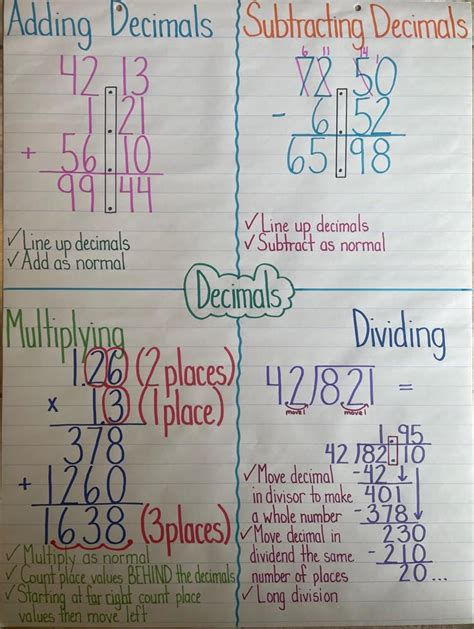 Adding Decimals
42.13
1.21
+ 56.10
99.44
✓Line up decimals
✓Add as normal
Subtracting Decimals
6 11 14
72.50
- 6.52
65.98
✓Line up decimals
✓Subtract as normal
Decimals
Multiplying
1.26 (2 places)
x 1.3 (1 place)
378
+ 1260
1.638 (3 places)
✓Multiply as normal
✓Count place values BEHIND the decimals
✓Starting at far right count place
values then move left
Dividing
4.2)8.21 =
move 1 move 1
1.95
42)82.10
-42
401
-378
230
-210
20...
✓Move decimal
in divisor to make
a whole number
✓Move decimal in
dividend the same
number of places
✓Long division